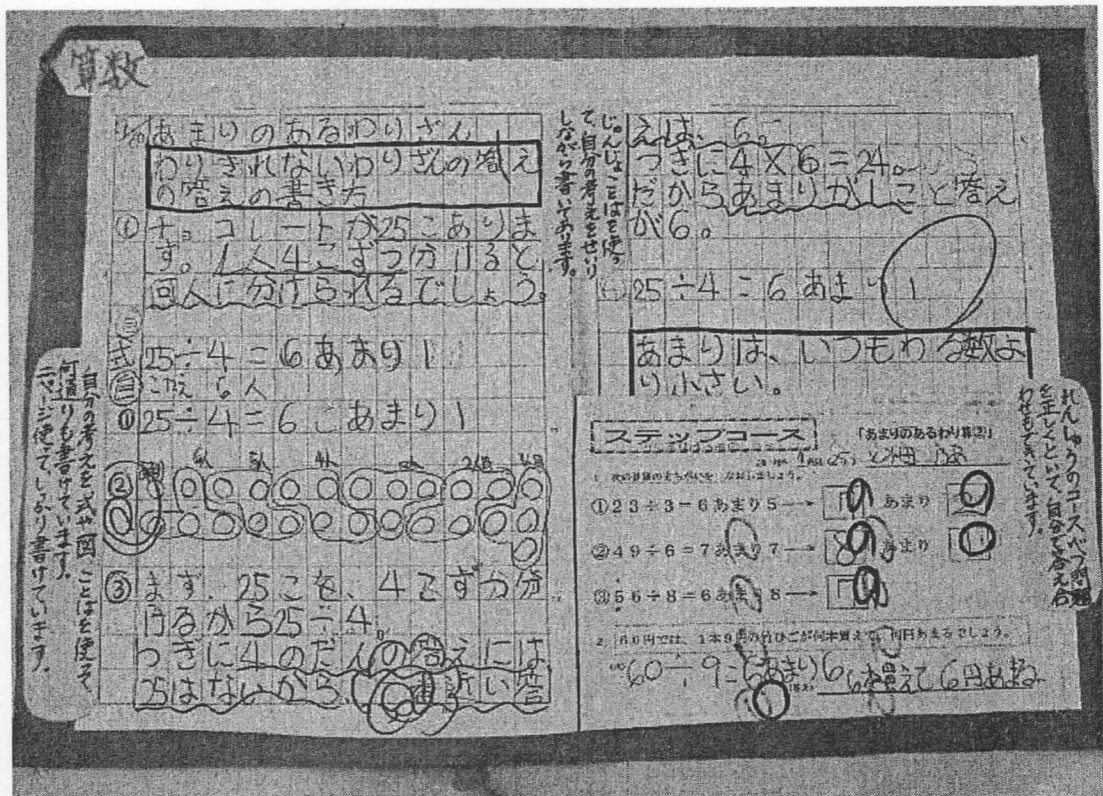 算数
あまりのあるわりざん
わりきれないわりざんの答え
の答えの書き方
① チョコレートが25こありま
す。1人4こずつ分けると
何人に分けられるでしょう。
式 25÷4=6あまり1
こたえ 6人
① 25÷4=6こあまり1
②
③ まず、25こを、4こずつ分
けるから25÷4。
つぎに4のだんの答えには
25はないから、近い答
自分の考えを式や図、ことばを使って、
何通りも書けています。
二ページ使って、しっかり書けています。
じゅんじょことばを使っ
て、自分の考えをせいり
しながら書いてあります。
えは、6。
つぎに4×6=24。
だからあまりが1こと答え
が6。
25÷4=6あまり1
あまりは、いつもわる数よ
り小さい。
ステップコース 「あまりのあるわり算②」
1 次の計算のまちがいを、なおしましょう。
①23÷3=6あまり5→ 7 あまり 2
②49÷6=7あまり7→ 8 あまり 1
③56÷8=6あまり8→ 7
2 60円では、1本9円の竹ひごが何本買えて、何円あまるでしょう。
60÷9=6あまり6 6本買えて6円あまる
れんしゅうのコースべつ問題
を正しくといて、自分で答え合
わせもできています。